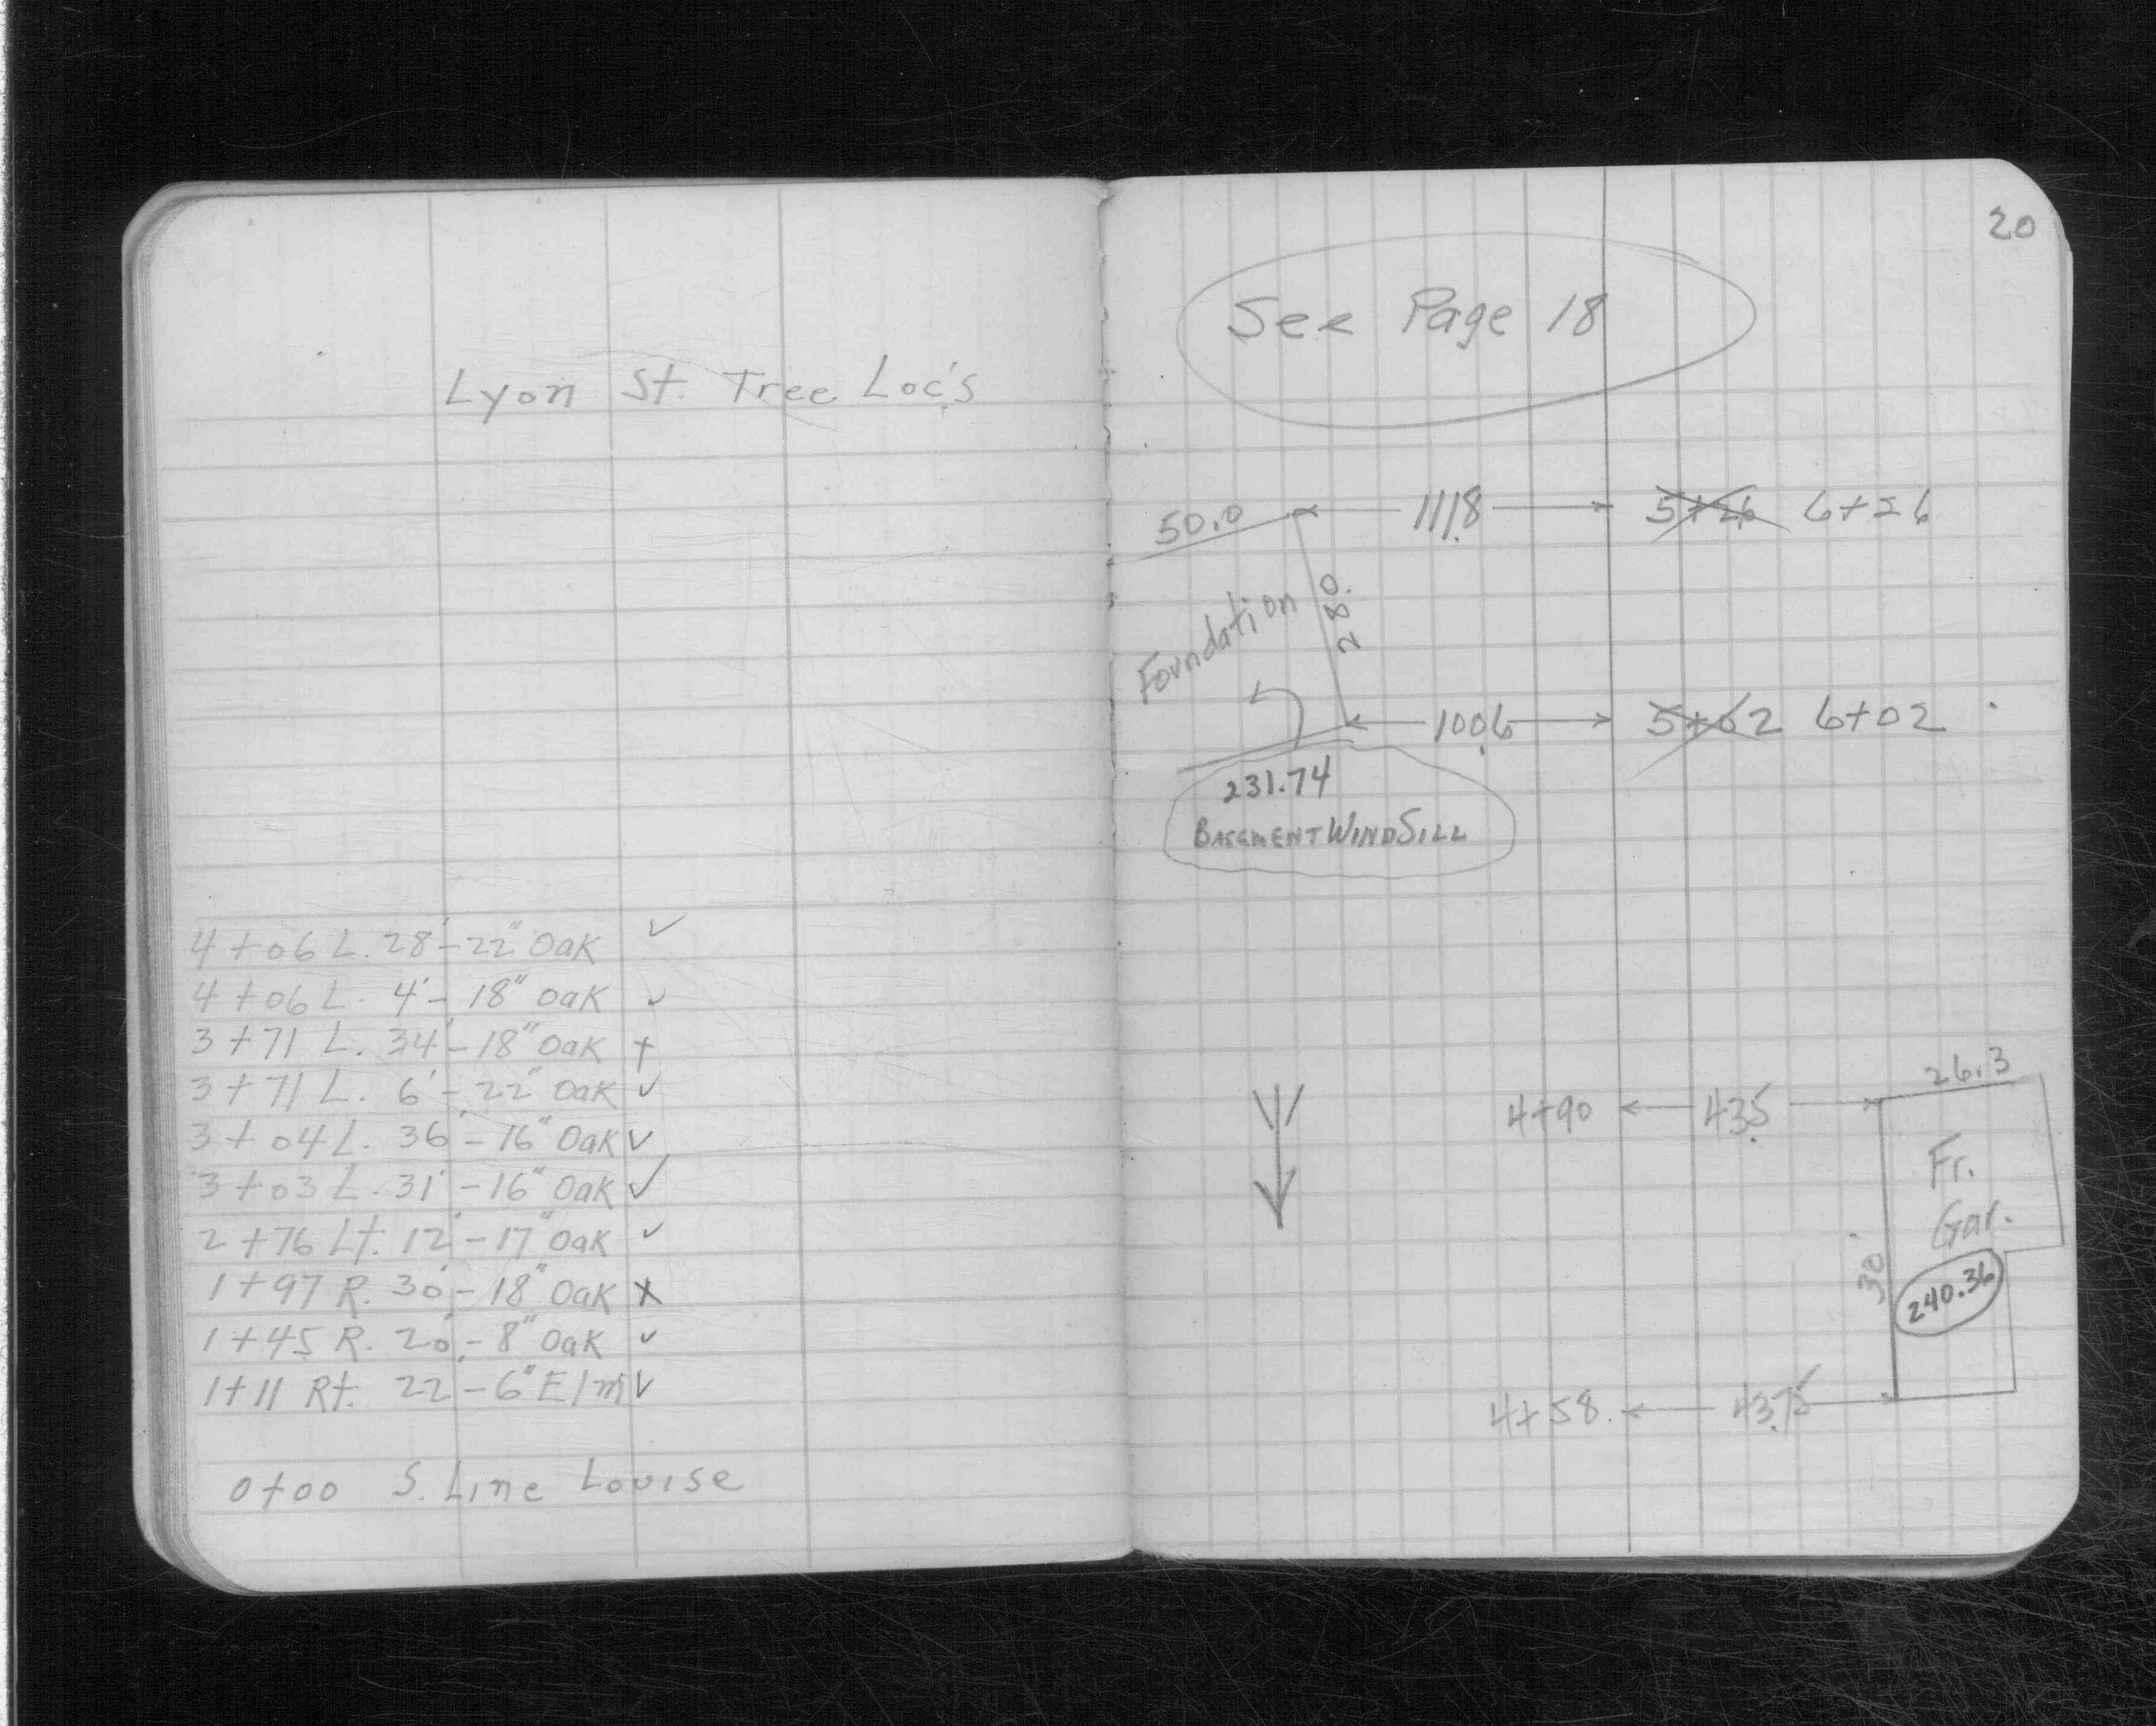 Lyon St. Tree Loc's
4+06 L. 28'-22" Oak ✓
4+06 L. 4'- 18" Oak ✓
3+71 L. 34'-18" Oak +
3+71 L. 6'-22" Oak ✓
3+04 L. 36'-16" Oak ✓
3+03 L. 31'-16" Oak ✓
2+76 Lt. 12'-17" Oak ✓
1+97 R. 30'-18" Oak X
1+45 R. 20'-8" Oak ✓
1+11 Rt. 22'-6" Elm ✓
0+00 S. Line Louise
20
See Page 18
50.0 111.8 5+26 6+26
Foundation
28.0
100.6 5+02 6+02
231.74
BASEMENT WINDSILL
26.3
4+90 43.5
Fr.
Gar.
30'
240.36
4+58 43.75